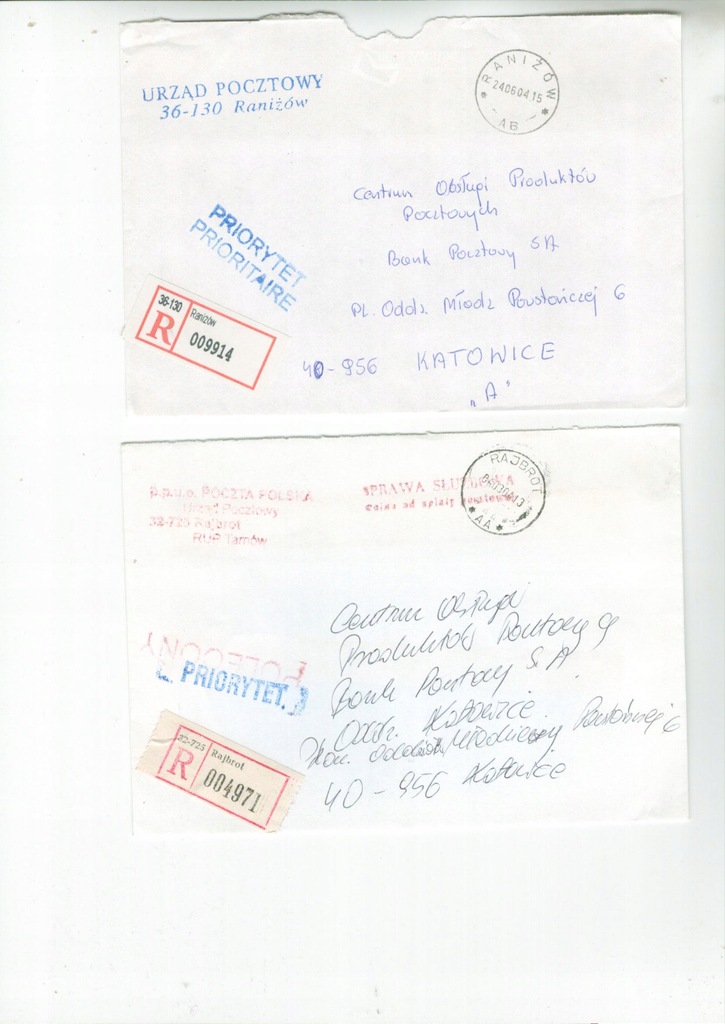 URZĄD POCZTOWY
36-130 Raniżów
RANIŻÓW
24060415
AB
Centrum Obsługi Produktów
Pocztowych
Bank Pocztowy SA
Pl. Oddz. Młodz Powstańczej 6
40-956 KATOWICE
"A"
PRIORYTET
PRIORITAIRE
36-130 Raniżów
R 009914
p.p.u.p. POCZTA POLSKA
Urząd Pocztowy
32-725 Rajbrot
RUP Tarnów
SPRAWA SŁUŻBOWA
wolna od opłaty pocztowej
RAJBROT
AA
Centrum Obsługi
Produktów Pocztowych
Bank Pocztowy S.A.
Oddz. Katowice
Młodzieży Powstańczej 6
40-956 Katowice
POLECONY
PRIORYTET
32-725 Rajbrot
R 004971